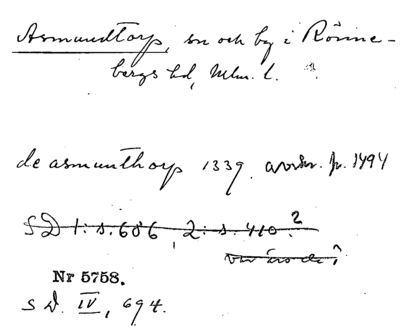 Asmundtorp, sn och by i Rönne-
bergs hd, Mlm. l.
de asmunthorp 1339. avskr. fr. 1494
SD 1: s. 686, 2: s. 410. ?
Nr 5758.
S D. IV, 694.